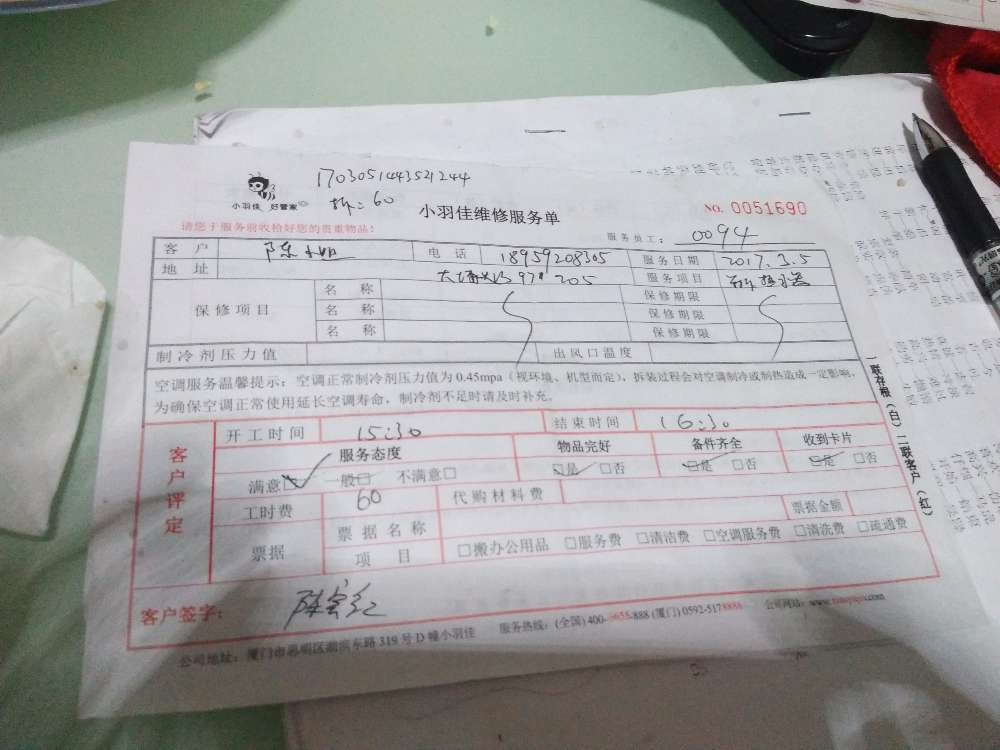 170305143521244
小羽佳 好管家
拆:60
小羽佳维修服务单
NO. 0051690
请您于服务前收检好您的贵重物品!
服务员工: 0094
客户 陈小姐 电话 18959208305 服务日期 2017.3.5
地址 97# 205 服务项目
保修项目 名称 保修期限
名称 保修期限
名称 保修期限
制冷剂压力值 出风口温度
空调服务温馨提示:空调正常制冷剂压力值为0.45mpa(视环境、机型而定),拆装过程会对空调制冷或制热造成一定影响,
为确保空调正常使用延长空调寿命,制冷剂不足时请及时补充。
客户评定
开工时间 15:30 结束时间 16:30
服务态度 物品完好 备件齐全 收到卡片
满意☑ 一般□ 不满意□ ☑是 □否 ☑是 □否 ☑是 □否
工时费 60 代购材料费
票据 票据名称 票据金额
项目 □搬办公用品 □服务费 □清洁费 □空调服务费 □清洗费 □疏通费
客户签字:
公司地址:厦门市思明区湖滨东路319号D幢小羽佳 服务热线:(全国)400-9658-888 (厦门)0592-5178888 公司网站:
一联存根(白) 二联客户(红)